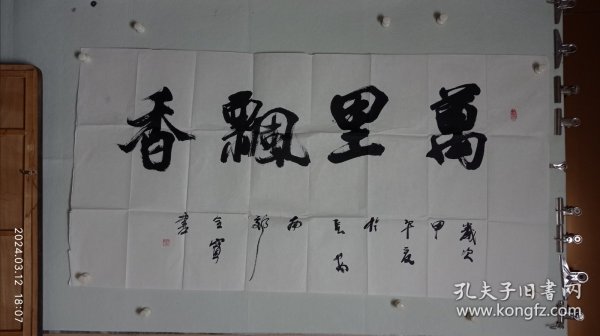 萬里飄香
歲次
甲
午夏
於
長安
南
郭
全寶
書
2024.03.12 18:07
孔夫子旧書网
www.kongfz.com